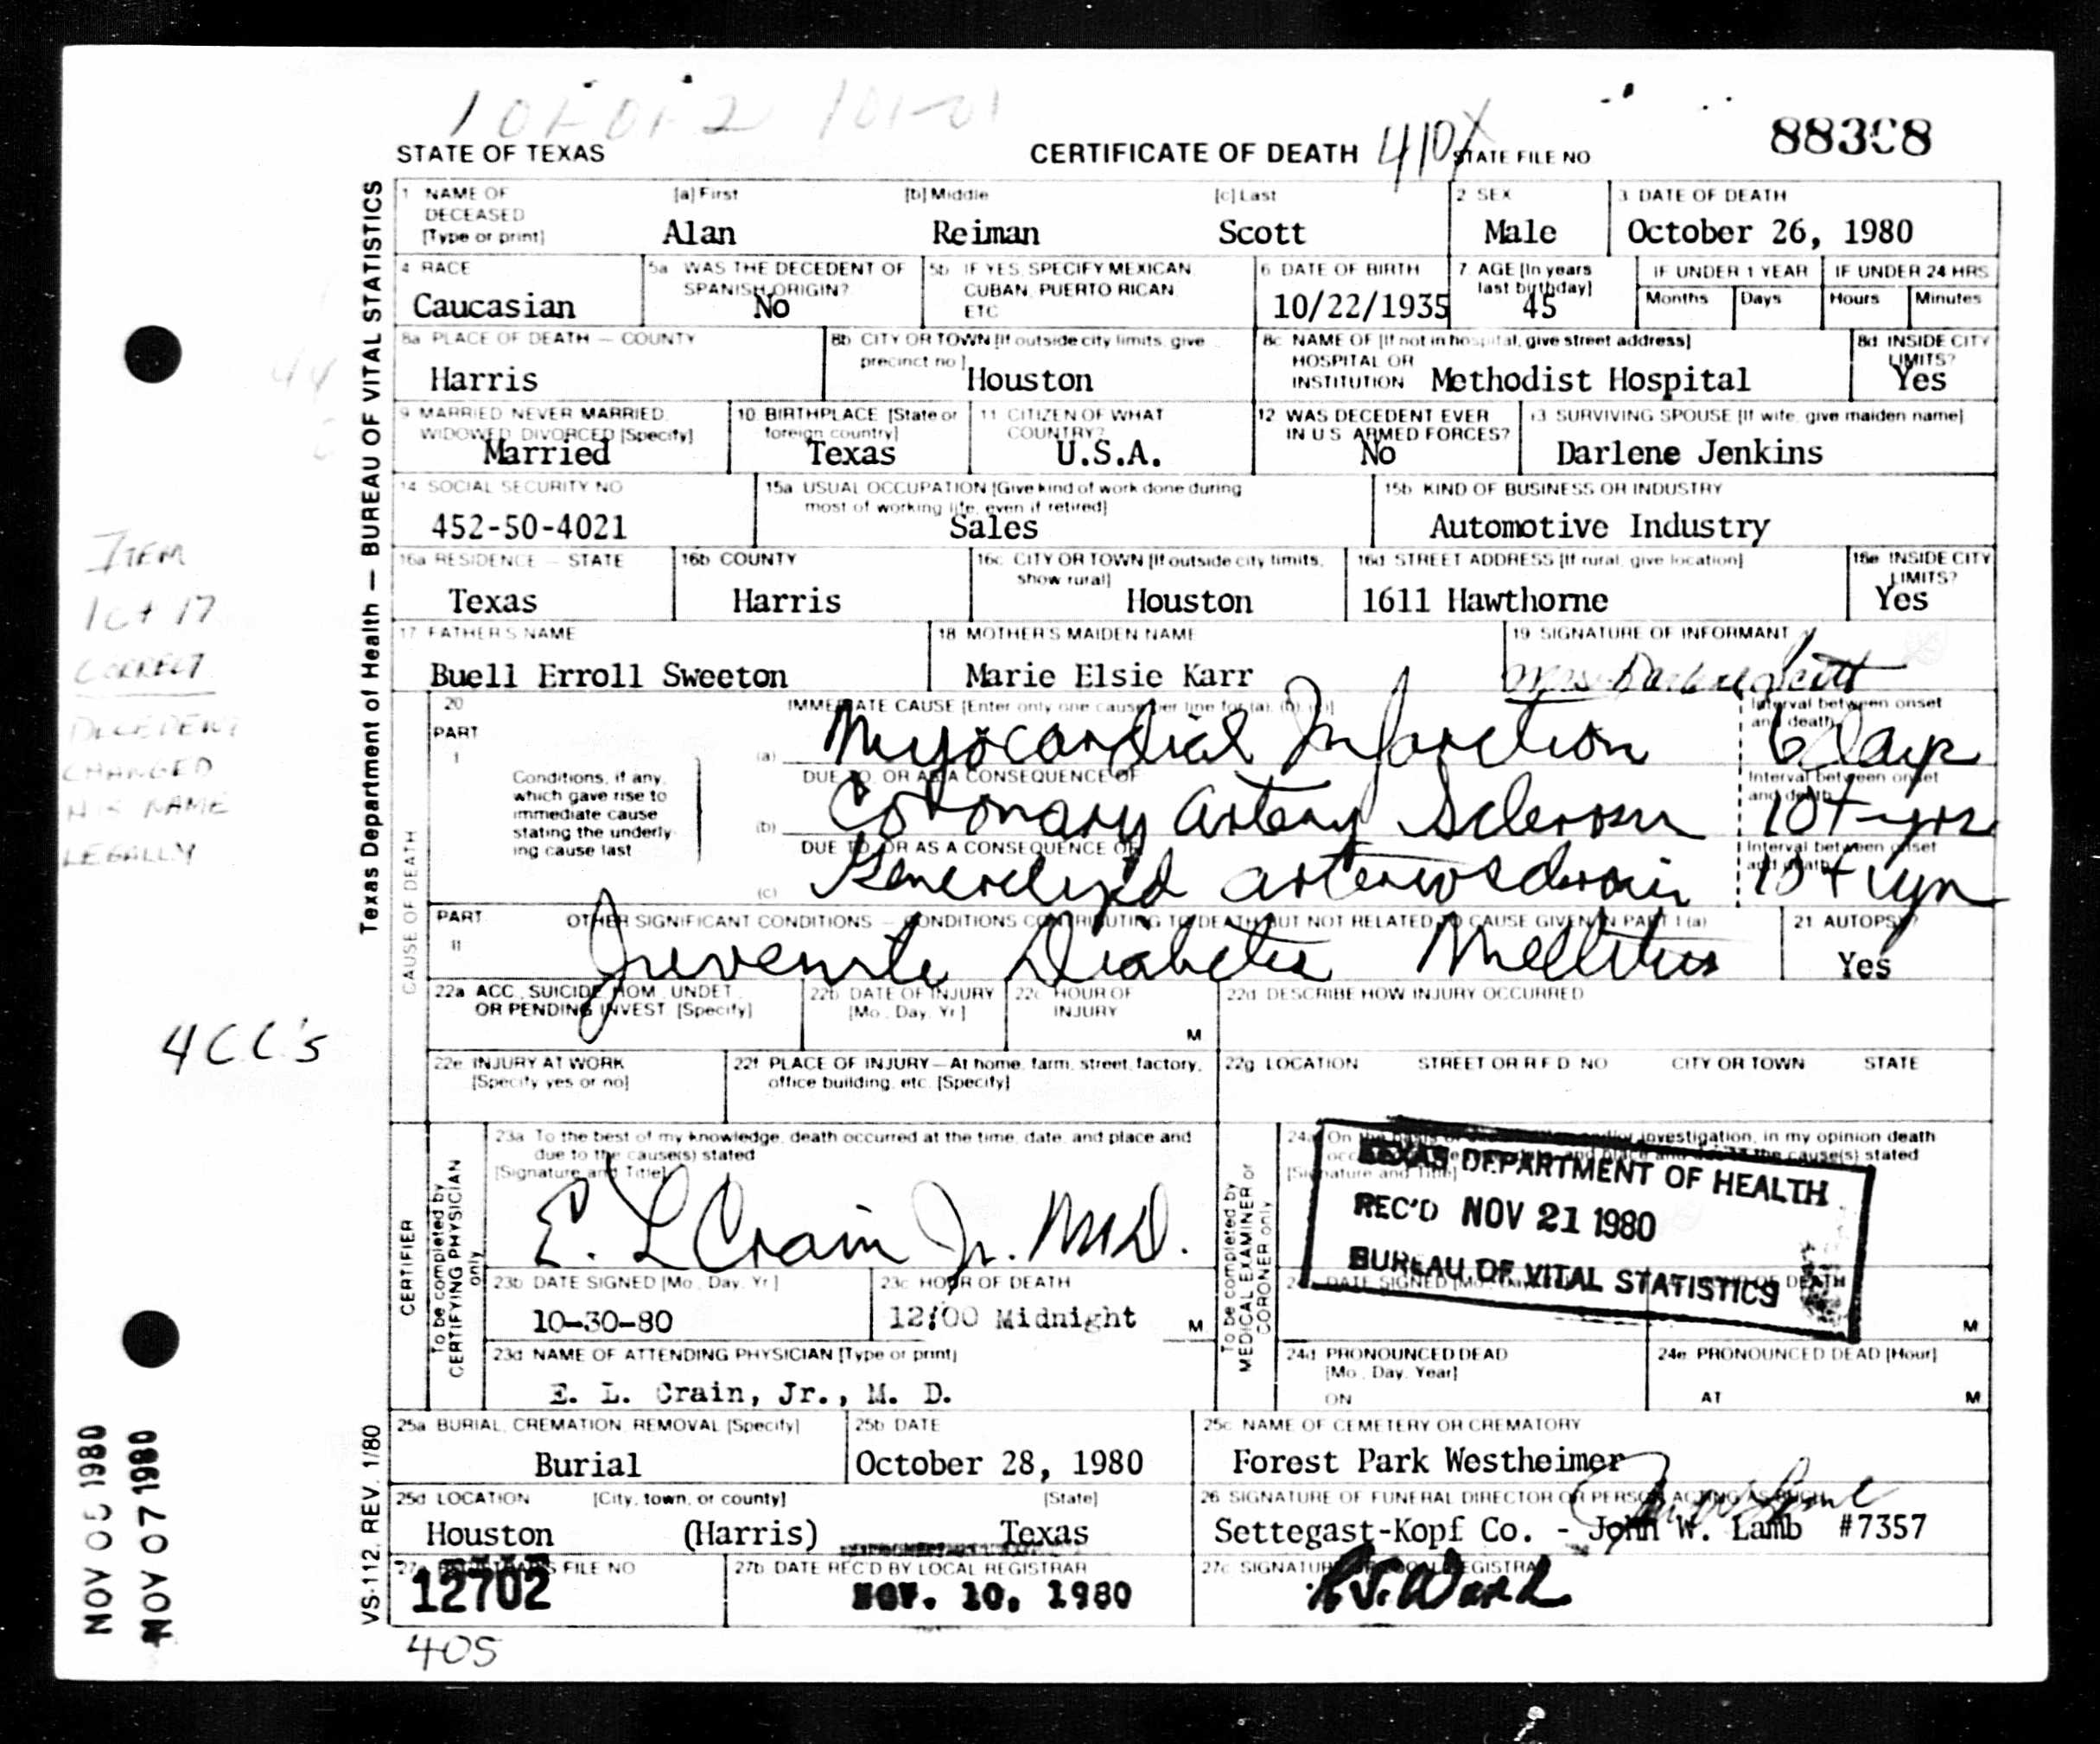 101-01-2 101-01
STATE OF TEXAS CERTIFICATE OF DEATH 410X STATE FILE NO 88308
Texas Department of Health — BUREAU OF VITAL STATISTICS
1 NAME OF DECEASED [Type or print] [a] First [b] Middle [c] Last
Alan Reiman Scott
2 SEX
Male
3 DATE OF DEATH
October 26, 1980
4 RACE
Caucasian
5a WAS THE DECEDENT OF SPANISH ORIGIN?
No
5b IF YES, SPECIFY MEXICAN, CUBAN, PUERTO RICAN, ETC
6 DATE OF BIRTH
10/22/1935
7 AGE [In years last birthday]
45
IF UNDER 1 YEAR
Months Days
IF UNDER 24 HRS
Hours Minutes
8a PLACE OF DEATH — COUNTY
Harris
8b CITY OR TOWN [If outside city limits, give precinct no.]
Houston
8c NAME OF [If not in hospital, give street address] HOSPITAL OR INSTITUTION
Methodist Hospital
8d INSIDE CITY LIMITS?
Yes
9 MARRIED, NEVER MARRIED, WIDOWED, DIVORCED [Specify]
Married
10 BIRTHPLACE [State or foreign country]
Texas
11 CITIZEN OF WHAT COUNTRY?
U.S.A.
12 WAS DECEDENT EVER IN U S ARMED FORCES?
No
13 SURVIVING SPOUSE [If wife, give maiden name]
Darlene Jenkins
14 SOCIAL SECURITY NO
452-50-4021
15a USUAL OCCUPATION [Give kind of work done during most of working life, even if retired]
Sales
15b KIND OF BUSINESS OR INDUSTRY
Automotive Industry
16a RESIDENCE — STATE
Texas
16b COUNTY
Harris
16c CITY OR TOWN [If outside city limits, show rural]
Houston
16d STREET ADDRESS [If rural, give location]
1611 Hawthorne
16e INSIDE CITY LIMITS?
Yes
17 FATHER'S NAME
Buell Erroll Sweeton
18 MOTHER'S MAIDEN NAME
Marie Elsie Karr
19 SIGNATURE OF INFORMANT
Mrs. Darlene Scott
ITEM
1c + 17
CORRECT
DECEDENT
CHANGED
HIS NAME
LEGALLY
CAUSE OF DEATH
20 PART I
IMMEDIATE CAUSE [Enter only one cause per line for (a), (b), (c)]
Conditions, if any,
which gave rise to
immediate cause
stating the underly
ing cause last
(a) Myocardial Infarction
Interval between onset and death
6 Days
DUE TO, OR AS A CONSEQUENCE OF
(b) Coronary Artery Sclerosis
Interval between onset and death
10+ yrs
DUE TO, OR AS A CONSEQUENCE OF
(c) Generalized arteriosclerosis
Interval between onset and death
10+ yrs
PART II OTHER SIGNIFICANT CONDITIONS — CONDITIONS CONTRIBUTING TO DEATH BUT NOT RELATED TO CAUSE GIVEN IN PART I (a)
Juvenile Diabetes Mellitus
21 AUTOPSY?
Yes
4CC's
22a ACC., SUICIDE, HOM., UNDET., OR PENDING INVEST. [Specify]
22b DATE OF INJURY [Mo., Day, Yr.]
22c HOUR OF INJURY
M
22d DESCRIBE HOW INJURY OCCURRED
22e INJURY AT WORK [Specify yes or no]
22f PLACE OF INJURY—At home, farm, street, factory, office building, etc. [Specify]
22g LOCATION STREET OR R F D NO CITY OR TOWN STATE
CERTIFIER
To be completed by CERTIFYING PHYSICIAN only
23a To the best of my knowledge, death occurred at the time, date, and place and due to the cause(s) stated
[Signature and Title]
E. L Crain Jr. M.D.
23b DATE SIGNED [Mo., Day, Yr.]
10-30-80
23c HOUR OF DEATH
12:00 Midnight M
23d NAME OF ATTENDING PHYSICIAN [Type or print]
E. L. Crain, Jr., M. D.
To be completed by MEDICAL EXAMINER or CORONER only
24a On the basis of investigation, in my opinion death
the cause(s) stated
[Signature and Title]
TEXAS DEPARTMENT OF HEALTH
REC'D NOV 21 1980
BUREAU OF VITAL STATISTICS
DATE SIGNED
OF DEATH
M
24d PRONOUNCED DEAD [Mo., Day, Year]
ON
24e PRONOUNCED DEAD [Hour]
AT M
25a BURIAL, CREMATION, REMOVAL [Specify]
Burial
25b DATE
October 28, 1980
25c NAME OF CEMETERY OR CREMATORY
Forest Park Westheimer
25d LOCATION [City, town, or county] [State]
Houston (Harris) Texas
26 SIGNATURE OF FUNERAL DIRECTOR OR PERSON ACTING AS SUCH
Settegast-Kopf Co. - John W. Lamb #7357
FILE NO
12702
27b DATE REC'D BY LOCAL REGISTRAR
NOV. 10, 1980
27c SIGNATURE OF LOCAL REGISTRAR
VS-112, REV. 1/80
NOV 07 1980
405